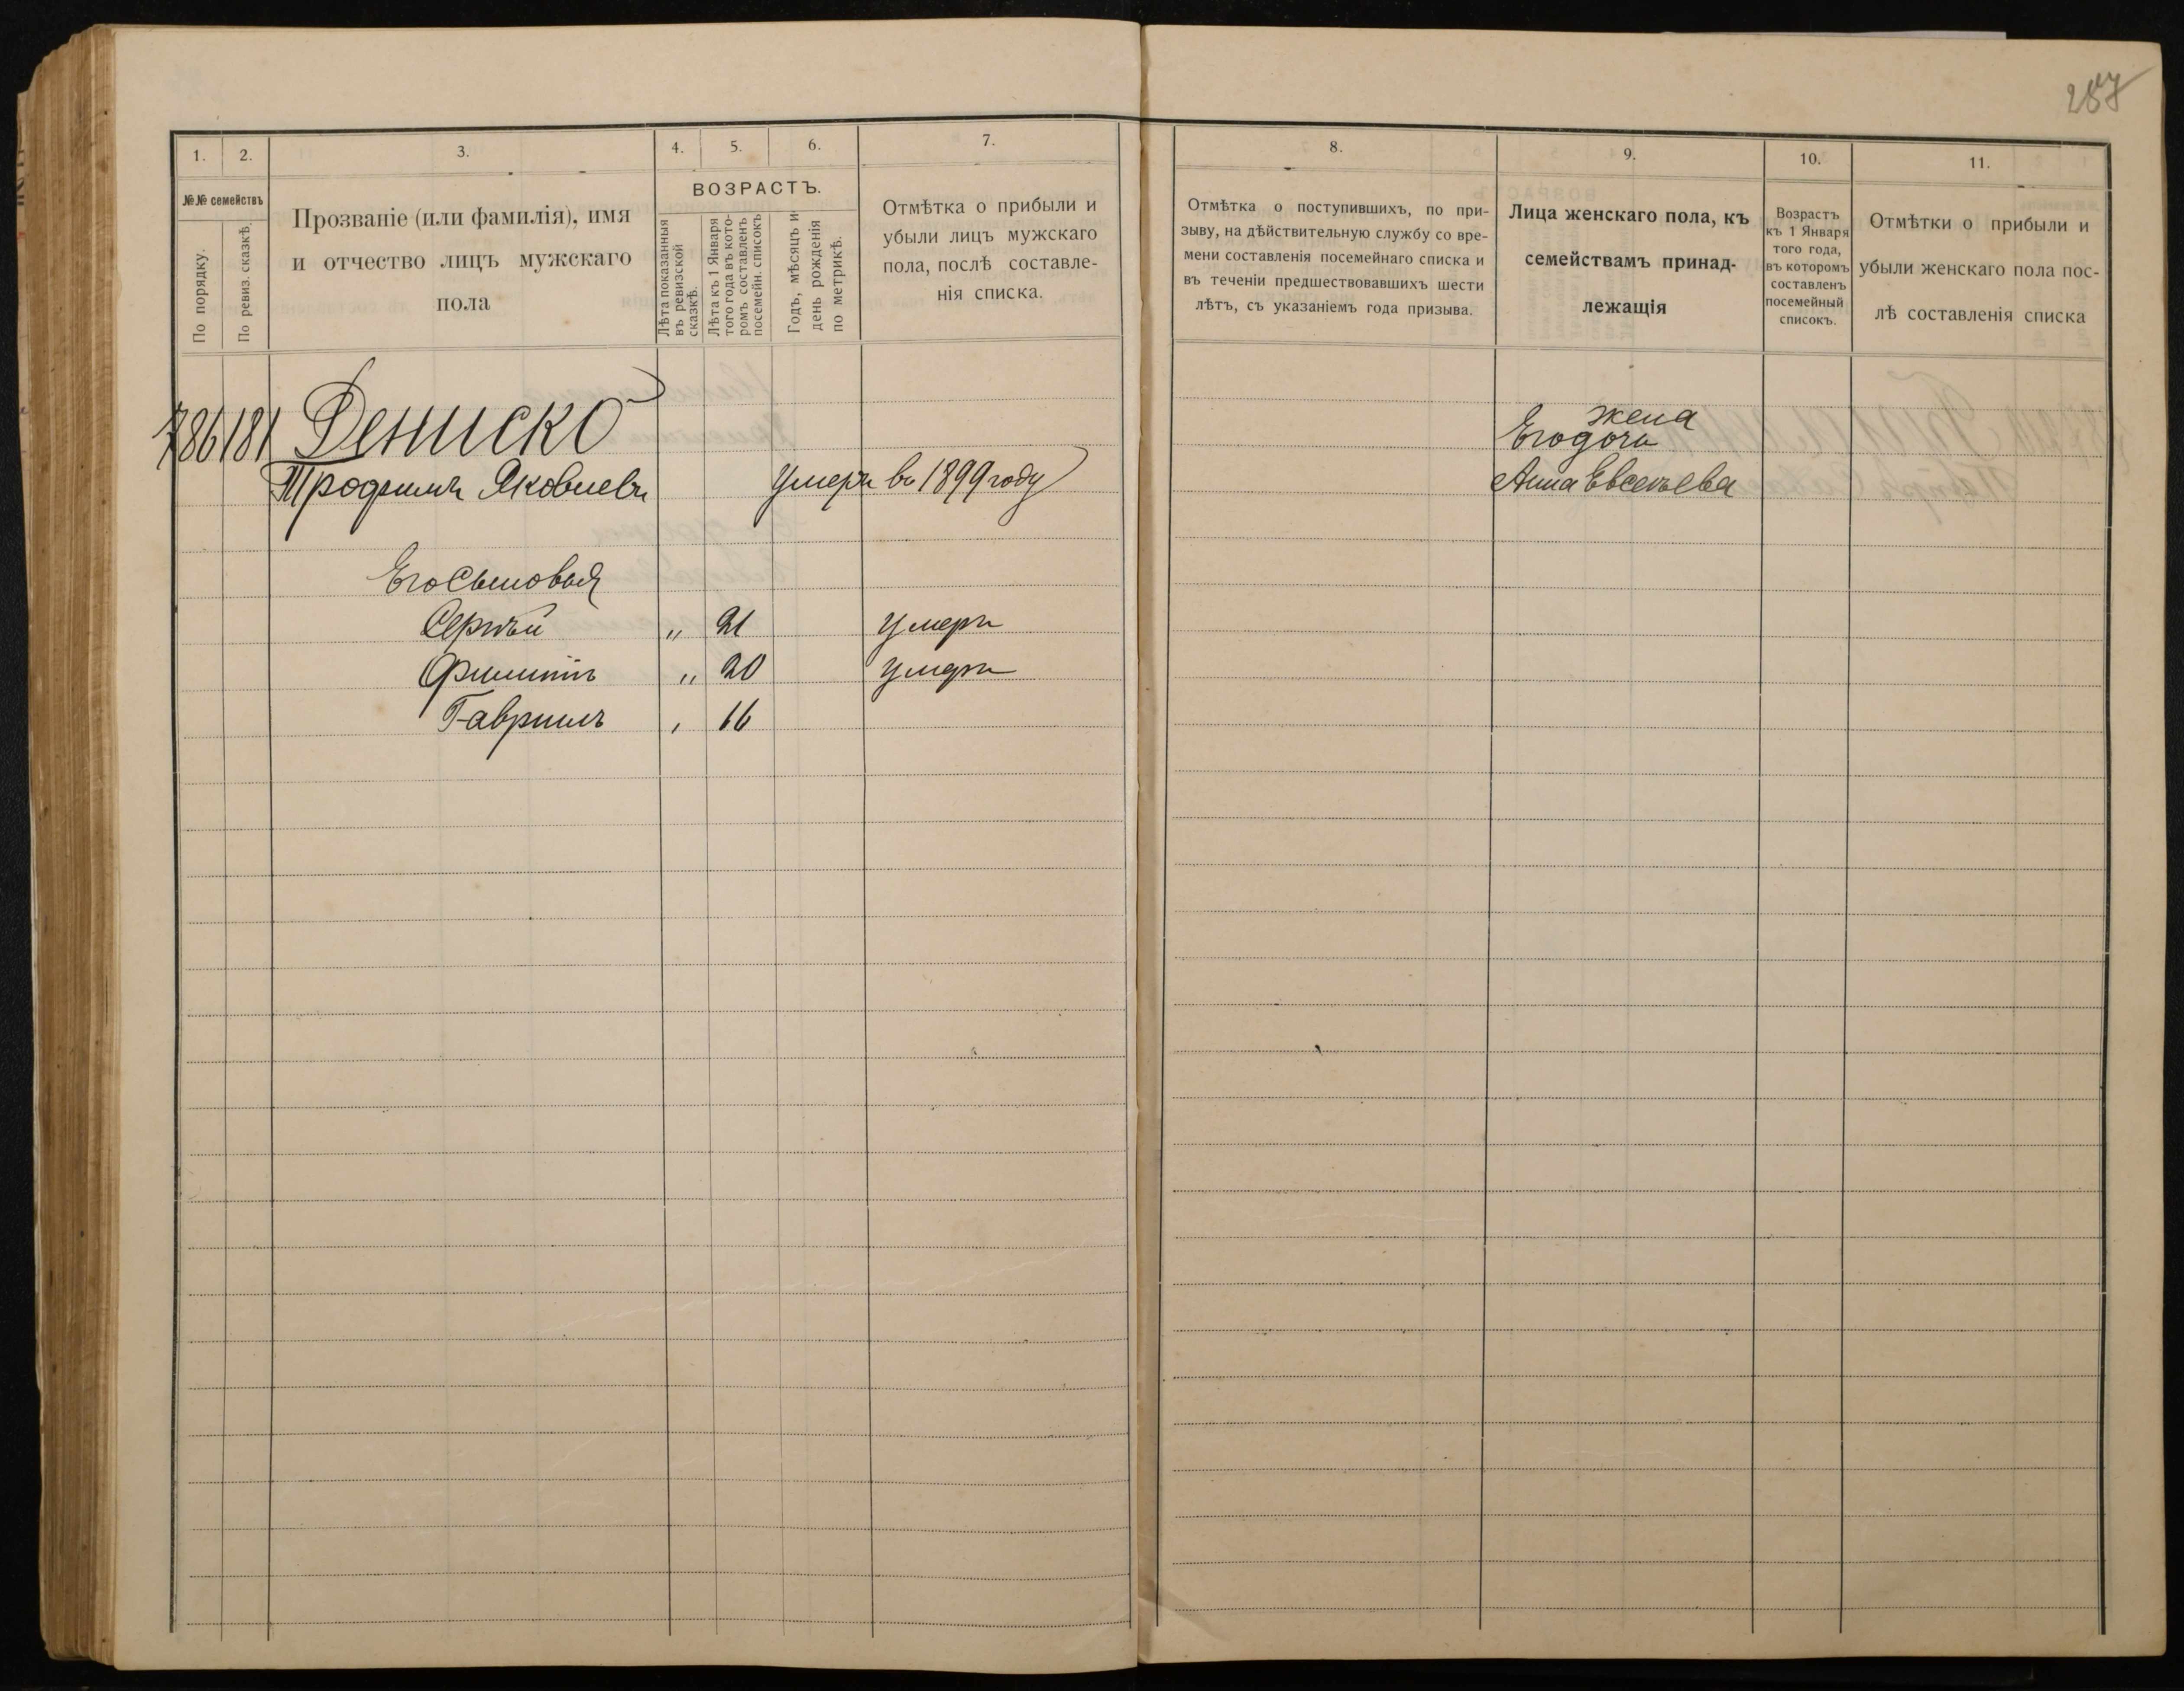 287
1.
2.
3.
4.
5.
6.
7.
№№ семействъ
По порядку.
По ревиз. сказкѣ.
Прозваніе (или фамилія), имя
и отчество лицъ мужскаго
пола
ВОЗРАСТЪ.
Лѣта показанныя
въ ревизской
сказкѣ.
Лѣта къ 1 Января
того года въ кото-
ромъ составленъ
посемейн. списокъ
Годъ, мѣсяцъ и
день рожденія
по метрикѣ.
Отмѣтка о прибыли и
убыли лицъ мужскаго
пола, послѣ составле-
нія списка.
786 181 Дениско
Трофимъ Яковлевъ Умеръ въ 1899 году
Его Сыновья
Сергѣй " 21 умеръ
Филиппъ " 20 умеръ
Гавріилъ , 16
8.
9.
10.
11.
Отмѣтка о поступившихъ, по при-
зыву, на дѣйствительную службу со вре-
мени составленія посемейнаго списка и
въ теченіи предшествовавшихъ шести
лѣтъ, съ указаніемъ года призыва.
Лица женскаго пола, къ
семействамъ принад-
лежащія
Возрастъ
къ 1 Января
того года,
въ которомъ
составленъ
посемейный
списокъ.
Отмѣтки о прибыли и
убыли женскаго пола пос-
лѣ составленія списка
жена
Его дочь
Анна Евсеьева